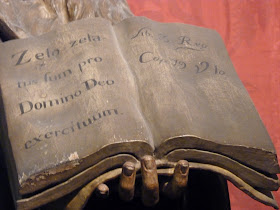 Zelo zela
tus sum pro
Domino Deo
exercituum.
Reg.
Cap. 19